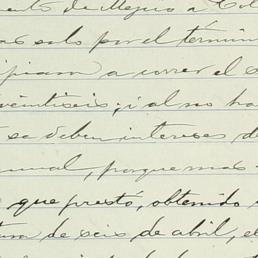 to de Mejico a
as solo por el término
cipiam a correr el
veintiseis; i al no ha
se deben intereses de
nual, porque mas
que prestó, obtenido
tura de seis de abril, el